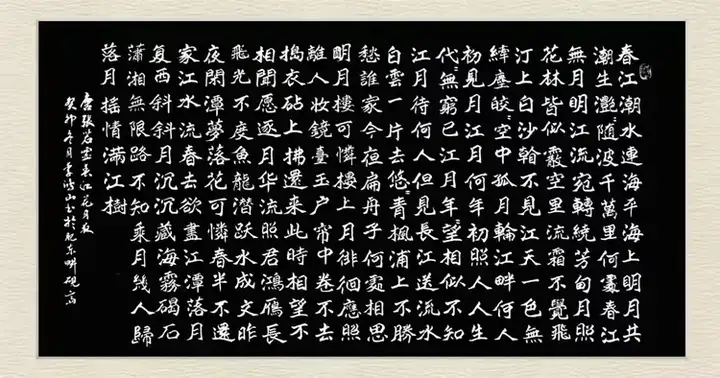 春江潮水連海平海上明月共
潮生灧〻随波千萬里何處春江
無月明江流宛轉繞芳甸月照
花林皆似霰空里流霜不覺飛
汀上白沙看不見江天一色無
纖塵皎〻空中孤月輪江畔何人
初見月江月何年初照人人生
代〻無窮已江月年〻望相似不知
江月待何人但見長江送流水
白雲一片去悠〻青楓浦上不勝
愁誰家今夜扁舟子何處相思
明月樓可憐樓上月徘徊應照
離人妝鏡臺玉户帘中卷不去
搗衣砧上拂還来此時相望不
相聞愿逐月华流照君鴻雁長
飛光不度魚龍潛跃水成文昨
夜閑潭夢落花可憐春半不還
家江水流春去欲盡江潭落月
复西斜斜月沉沉藏海霧碣石
瀟湘無限路不知乘月幾人歸
落月摇情满江樹
唐張若虚春江花月夜
癸卯冬月李山书於肥东畔砚斋